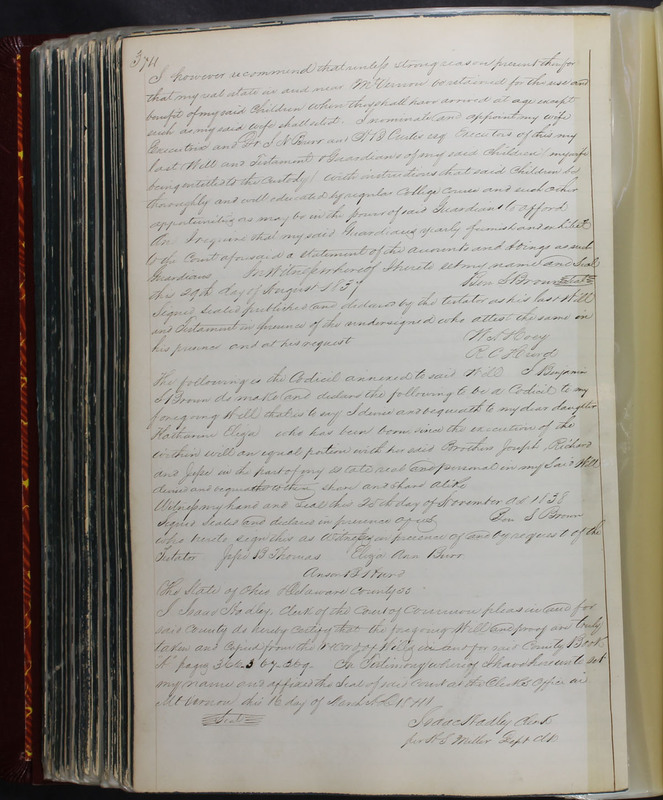 374
I however recommend that unless strong reason present therefor
that my real estate in and near Mt Vernon be retained for the use and
benefit of my said Children when they shall have arrived at age except
such as my said wife shall select. I nominate and appoint my wife
Executrix and Dr J N Burr and H B Curtis esq Executors of this my
last Will and Testament & Guardians of my said Children (my wife
being entitled to the custody) with instructions that said Children be
thoroughly and well educated by regular College Course and such other
opportunities as may be in the power of said Guardians to afford
And I require that my said Guardians yearly furnish and exhibit
to the Court aforesaid a statement of the accounts and doings as such
Guardians In Witness whereof I hereto set my name and Seal
this 29th day of August 1837 Ben S Brown Seal
Signed Sealed published and declared by the testator as his last Will
and Testament in presence of the undersigned who attest the same in
his presence and at his request
R C Hurd
The following is the Codicil annexed to said Will I Benjamin
S Brown do make and declare the following to be a Codicil to my
foregoing Will that is to say I devise and bequeath to my dear daughter
Eliza who has been born since the execution of the
within will an equal potion with her said Brothers Joseph Richard
and Jesse in the part of my estate real and personal in my said Will
devised and bequeathed to them, share and share alike
Witness my hand and Seal this 25th day of November AD 1838
Signed Sealed and declared in presence of us Ben S Brown
who hereto sign this as witnesses in presence of and by request of the
Testator Jesse B Thomas Eliza Ann Burr
The State of Ohio Delaware County ss
I Isaac Hadley Clerk of the Court of Common pleas in and for
said County do hereby certify that the foregoing Will and proof are truly
taken and copied from the record of Wills in and for said County Book
A pages 366. 367. 369. In Testimony whereof I have hereunto set
my name and affixed the Seal of said Court at the Clerks Office in
Mt Vernon this 16 day of March A D 1841
Seal
Isaac Hadley Clerk
per H S Miller Dept Clk